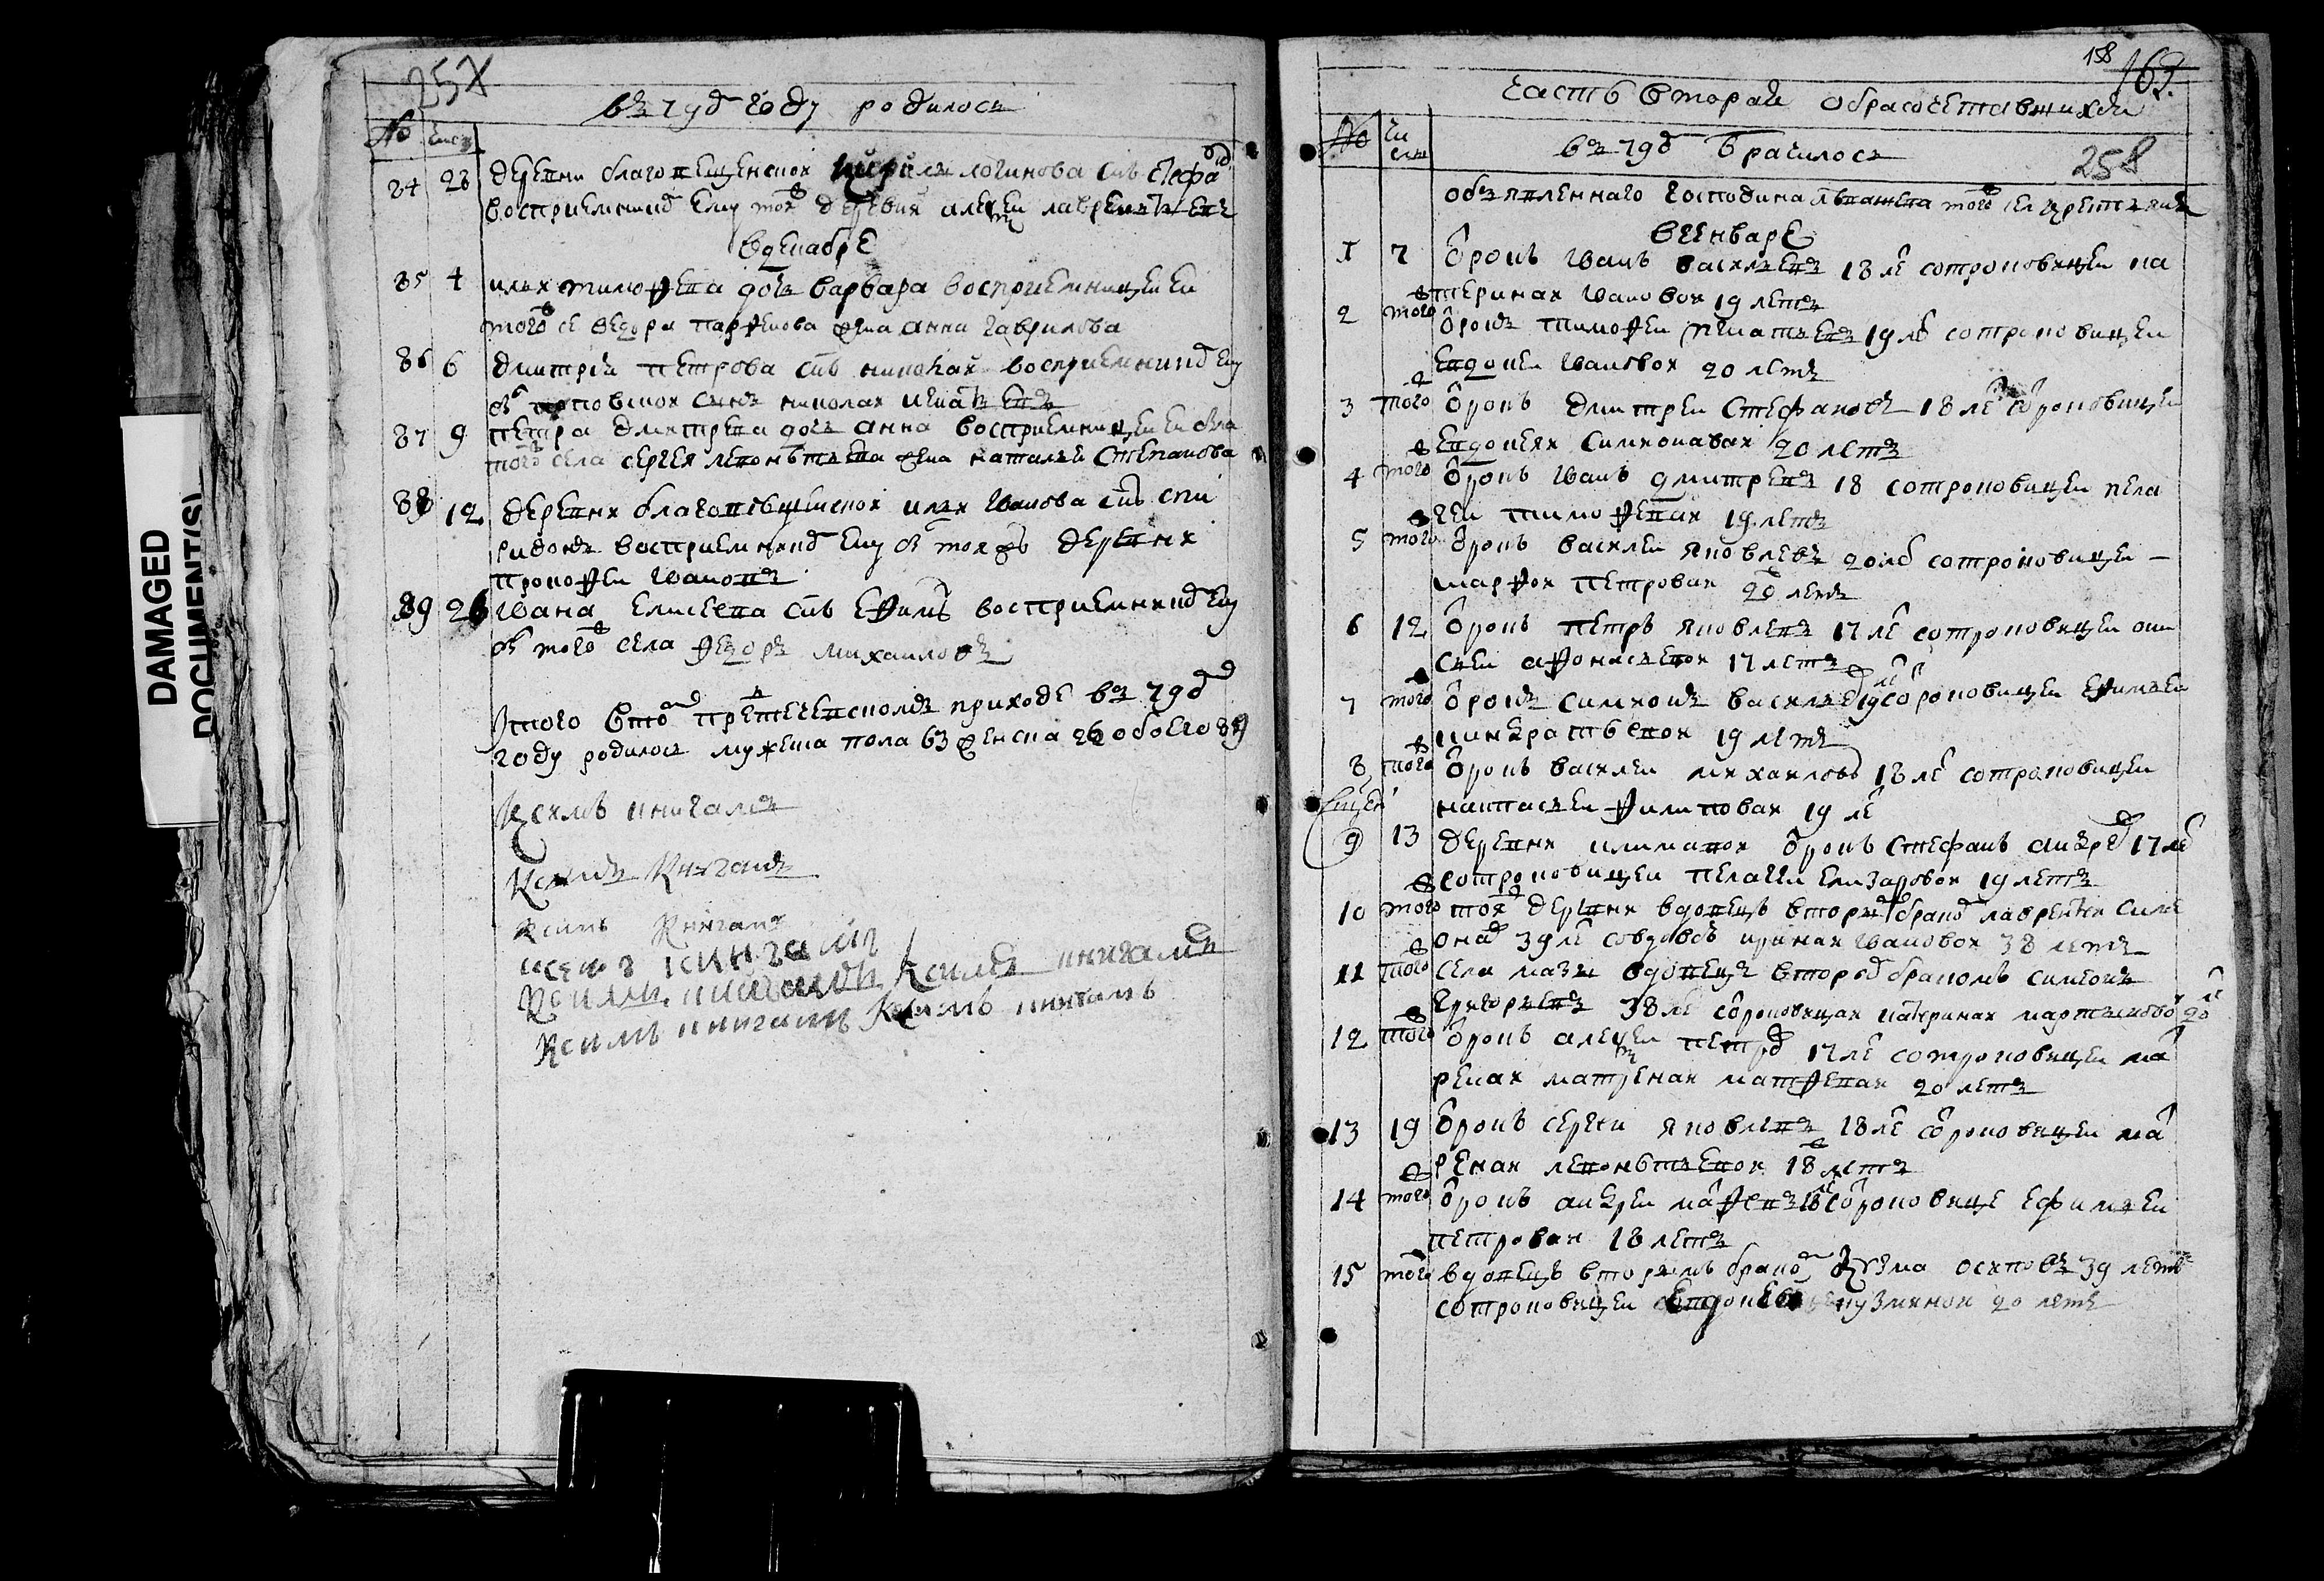 DAMAGED
DOCUMENT(S)
257
въ 79д году родилось
№ числ
84 28 деревни благовещенской логинова снъ стефа
восприемникъ ему тояж деревни алексеи лаврентьевъ
в декабре
85 4 ильи тимофева дочь варвара восприемницеи еи
тогож се федора парфенова жена анна гаврилова
86 6 дмитрия петрова снъ николай восприемникъ ему
поповской сынъ николай игнатьевъ
87 9 петра дмитрева дочь анна восприемницеи еи была
тогож села сергея леонтьева жена наталья степанова
88 12 деревни благовещенской ильи иванова снъ спи
ридонъ восприемникъ ему былъ тояжъ деревни
прокофеи ивановъ
89 26 ивана елисеева снъ ефимъ восприемникъ ему
былъ тогож села федоръ михаиловъ
Итого в томъ предтечевскомъ приходе въ 79д
году родилось мужеска пола 63 женска 26 обоего 89
Ксимъ книгамъ
Ксимъ Книгамъ
Ксимъ Книгамъ
ксемъ книгамъ
Ксимъ книгамъ Ксимъ книгамъ
Ксимъ книгамъ Ксимъ книгамъ
158 163
Часть вторая о бракосочетавшихся
№ чи сла
въ 79д Брачилось
258
объявленного господина того се крестьяне
в генваре
1 7 отрокъ иванъ васильевъ 18 ле сотроковицеи ка
териною ивановой 19 летъ
2 того отрокъ тимофеи игнатьевъ 19 ле сотроковицеи
евдокеи ивановой 20 летъ
3 того отрокъ дмитреи стефановъ 18 ле сотроковицеи
евдокеяй симионавай 20 летъ
4 того отрокъ иванъ дмитревъ 18 сотроковицеи пела
геи тимофевай 19 летъ
5 того отрокъ василеи яковлевъ 20 ле сотроковицеи
марфои петровай 20 летъ
6 12 отрокъ петръ яковлевъ 17 ле сотроковицеи
афонасьевой 17 летъ
7 того отрокъ симионъ васильев 19 ле сотроковицеи ефимьеи
панкратьевой 19 летъ
8 того отрокъ василеи михаиловъ 18 ле сотроковицеи
настасьеи филиповай 19 ле
9 13 деревни отрокъ стефанъ андрев 17 ле
сотроковицеи пелагеи елизаровой 19 летъ
10 того тояж деревни вдовецъ вторымъ бракомъ лаврентеи симе
оновъ 39 ле совдовой ариной ивановой 38 летъ
11 того села мазы вдовецъ вторымъ бракомъ симеонъ
григорьевъ 38 ле сотроковицеи катериной мартыновой 20 ле
12 того отрокъ алексеи петровъ 17 ле сотроковицеи
матреной матфевай 20 летъ
13 19 отрокъ сергеи яковлевъ 18 ле сотроковицеи
леонтьевой 18 летъ
14 того отрокъ андреи 18 ле сотроковице ефимьеи
петровай 18 летъ
15 того вдовецъ вторымъ бракомъ козма осиповъ 39 летъ
сотроковицеи евдокеи кузминой 20 летъ